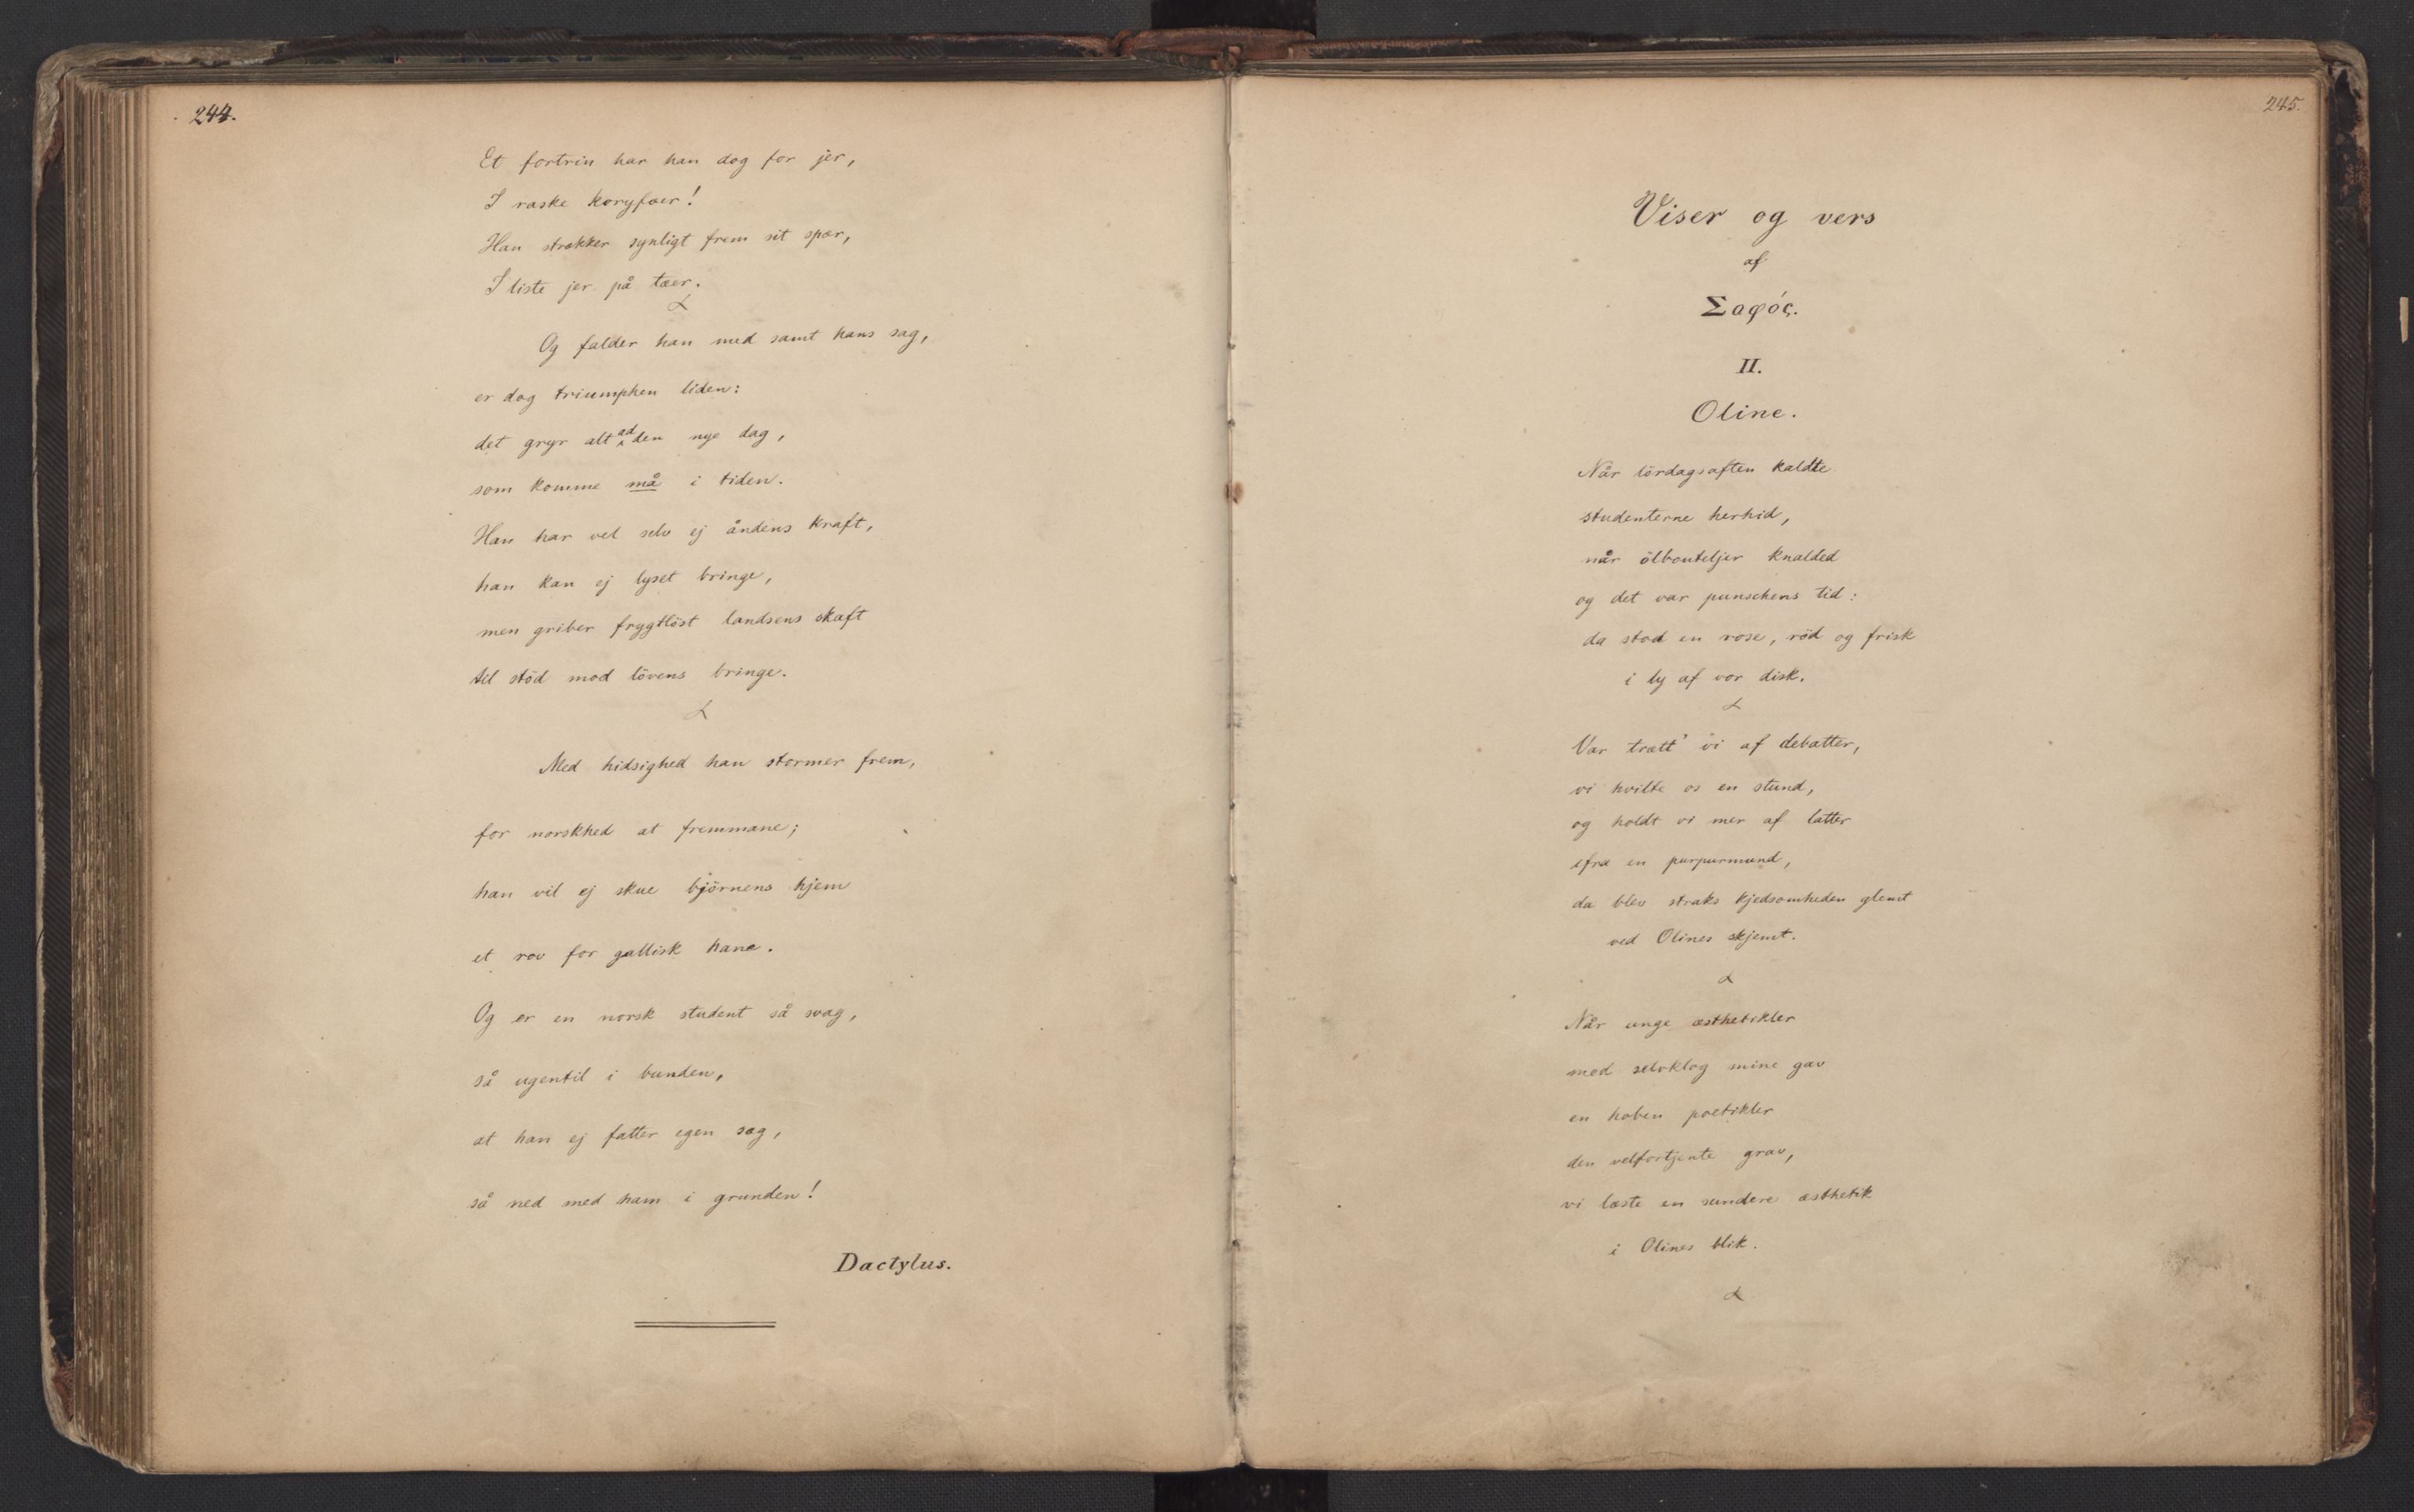 244.
Et fortrin har han dog for jer,
I raske koryfæer!
Han strækker synligt frem sit spær,
I liste jer på tæer.
Og falder han med samt hans sag,
er dog triumphen liden:
det gryr alt ad den nye dag,
som komme må i tiden.
Han har vel selv ej åndens kraft,
han kan ej lyset bringe,
men griber frygtlöst landsens skaft
til stöd mod lövens bringe.
Med hidsighed han stormer frem,
for norskhed at fremmane;
han vil ej skue björnens hjem
et rov for gallisk hane.
Og er en norsk student så svag,
så ugentil i bunden,
at han ej fatter egen sag,
så ned med ham i grunden!
Dactylus.
245.
Viser og vers
af
Σοφός.
II.
Oline.
Når lördagsaften kaldte
studenterne herhid,
når ölbouteljer knalded
og det var punschens tid:
da stod en rose, röd og frisk
i ly af vor disk.
Var trætt' vi af debatter,
vi hvilte os en stund,
og holdt vi mer af latter
ifra en purpurmund,
da blev straks kjedsomheden glemt
ved Olines skjemt.
Når unge æsthetikler
med selvklog mine gav
en hoben poetikler
den velfortjente grav,
vi læste en sundere æsthetik
i Olines blik.